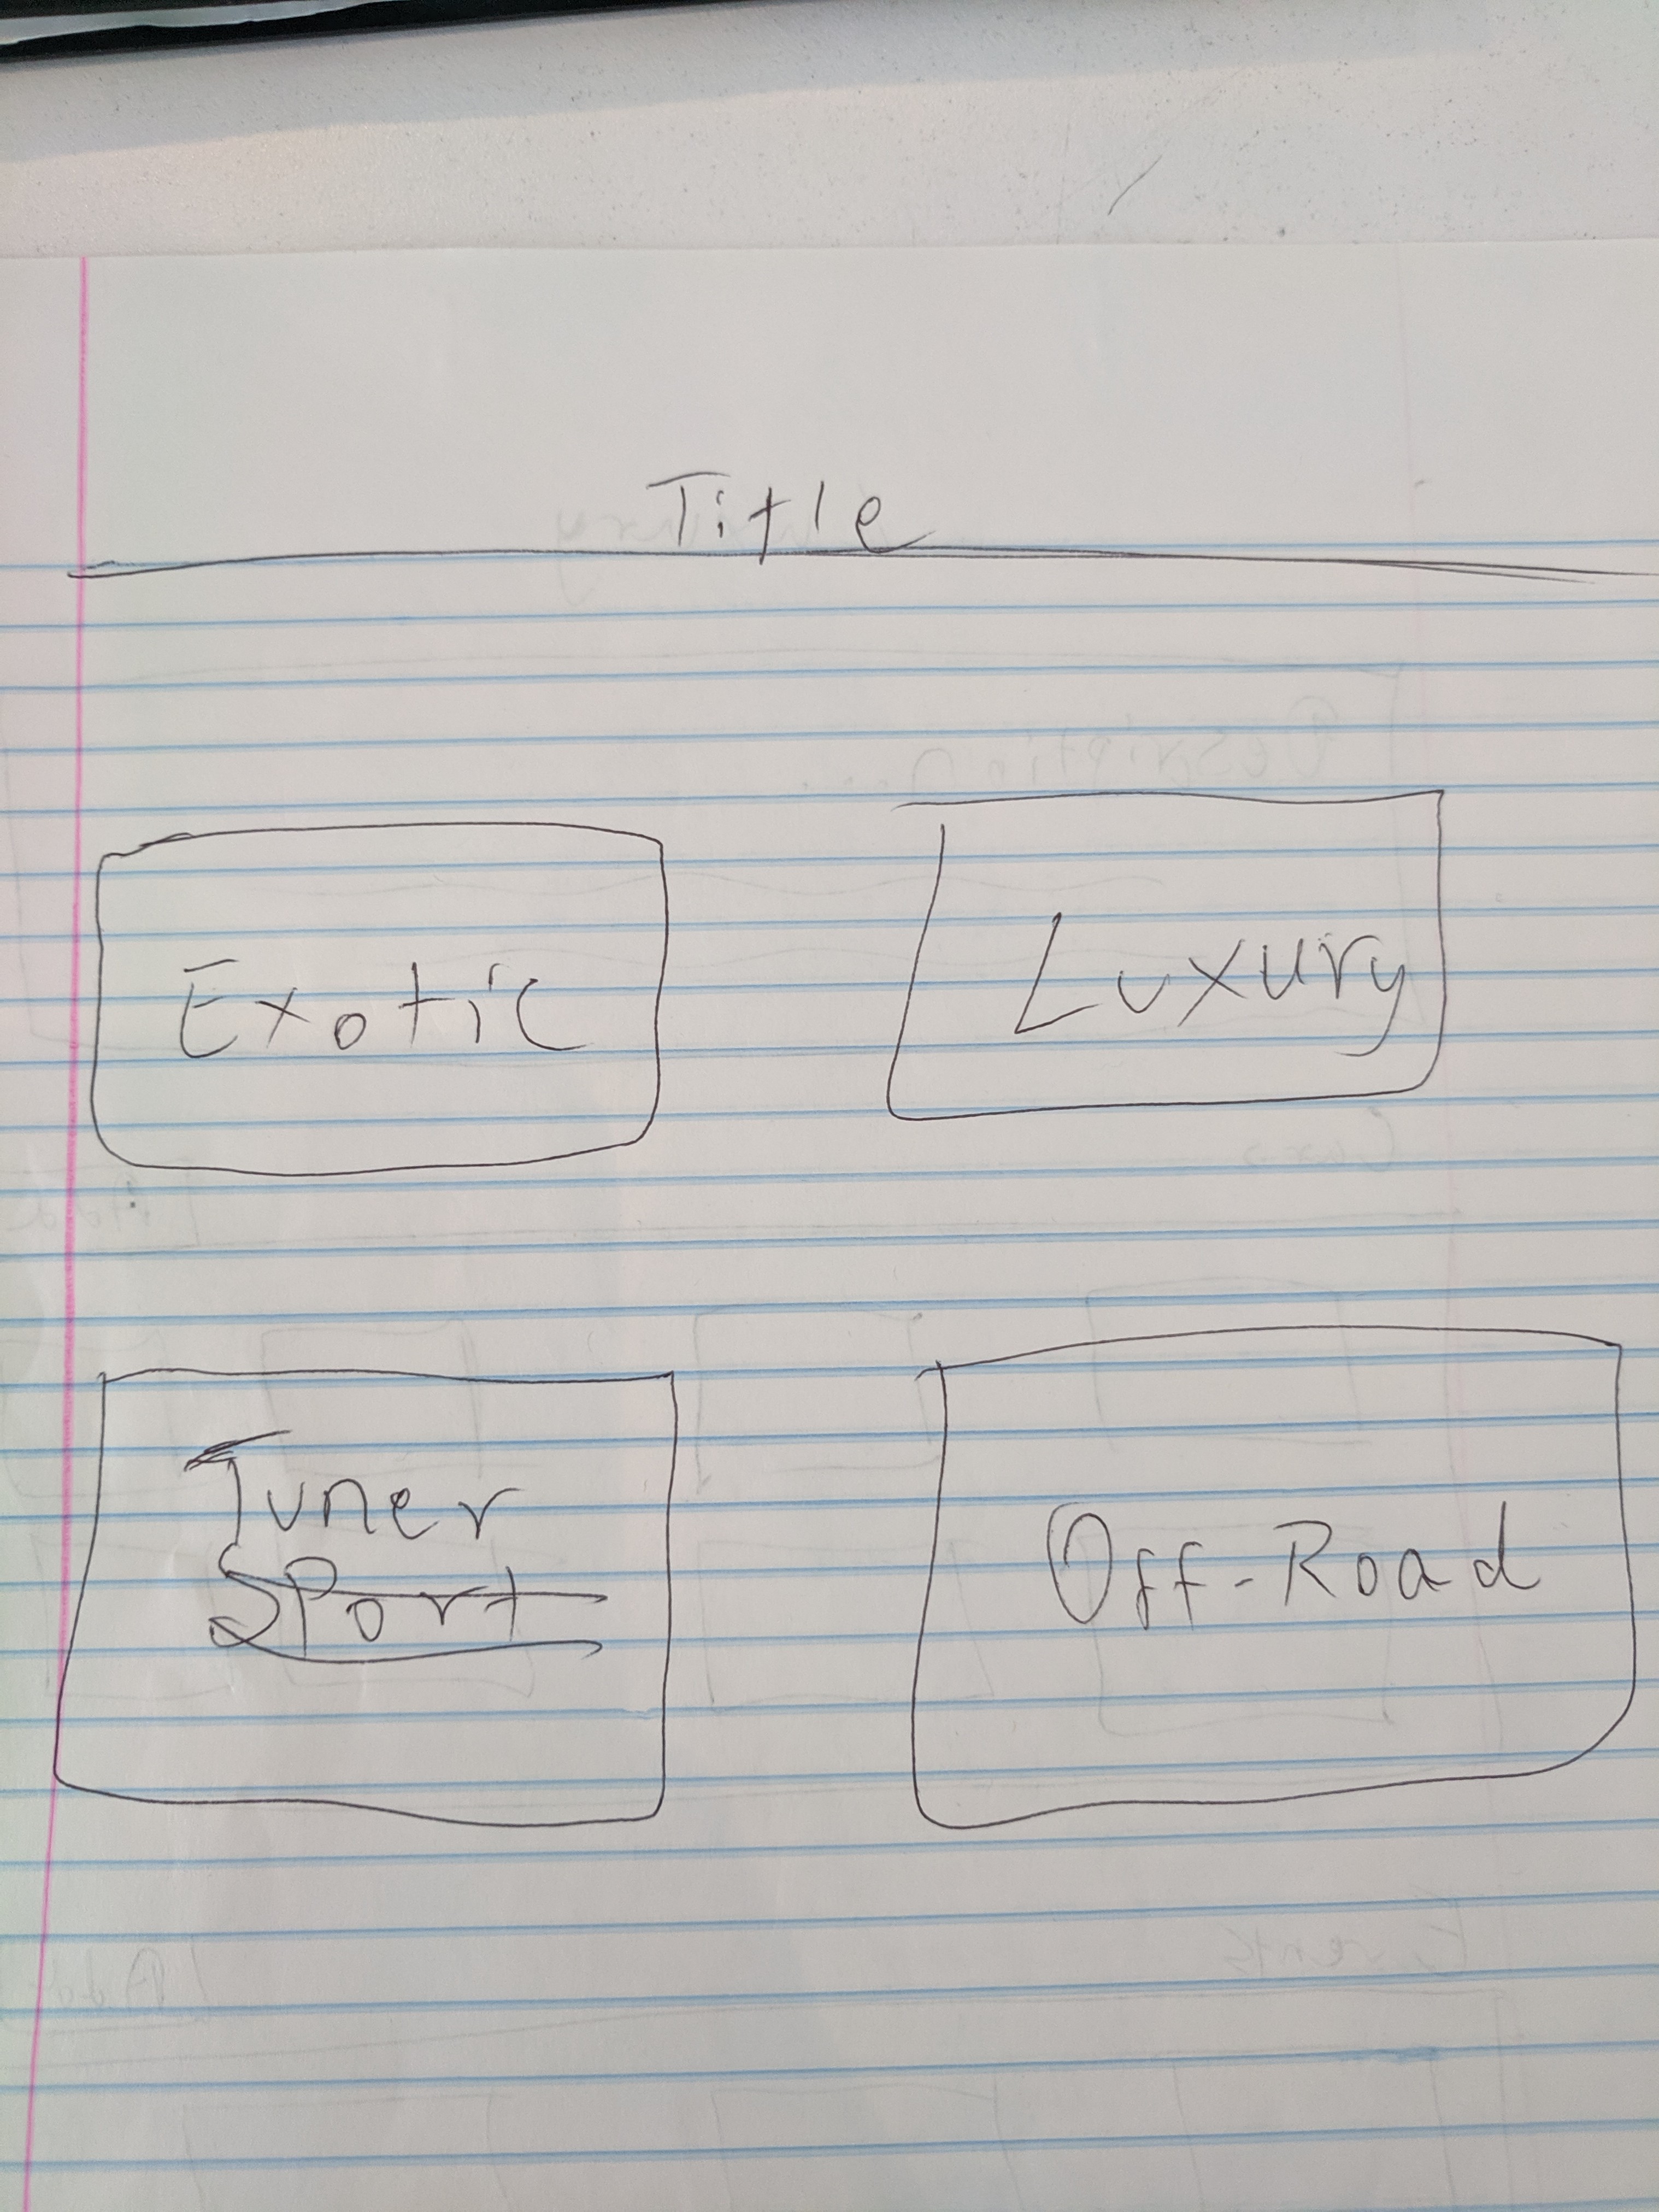 Title
Exotic
Luxury
Tuner
Sport
Off-Road